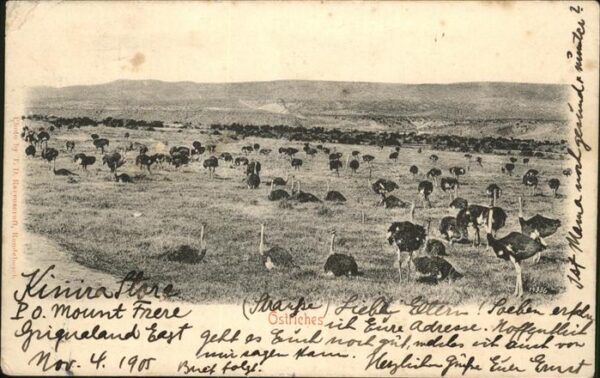 Kinira Store
P.O. Mount Frere
Griqualand East
Nov. 4. 1905
Ostriches
(Strauße) Liebe Eltern! Soeben erfahre
ich Eure Adresse. Hoffentlich
geht es Euch noch gut, welches ich auch von
mir sagen kann. Herzlichen Grüße Euer Ernst
Brief folgt.
Ist Mama noch gesund & munter?